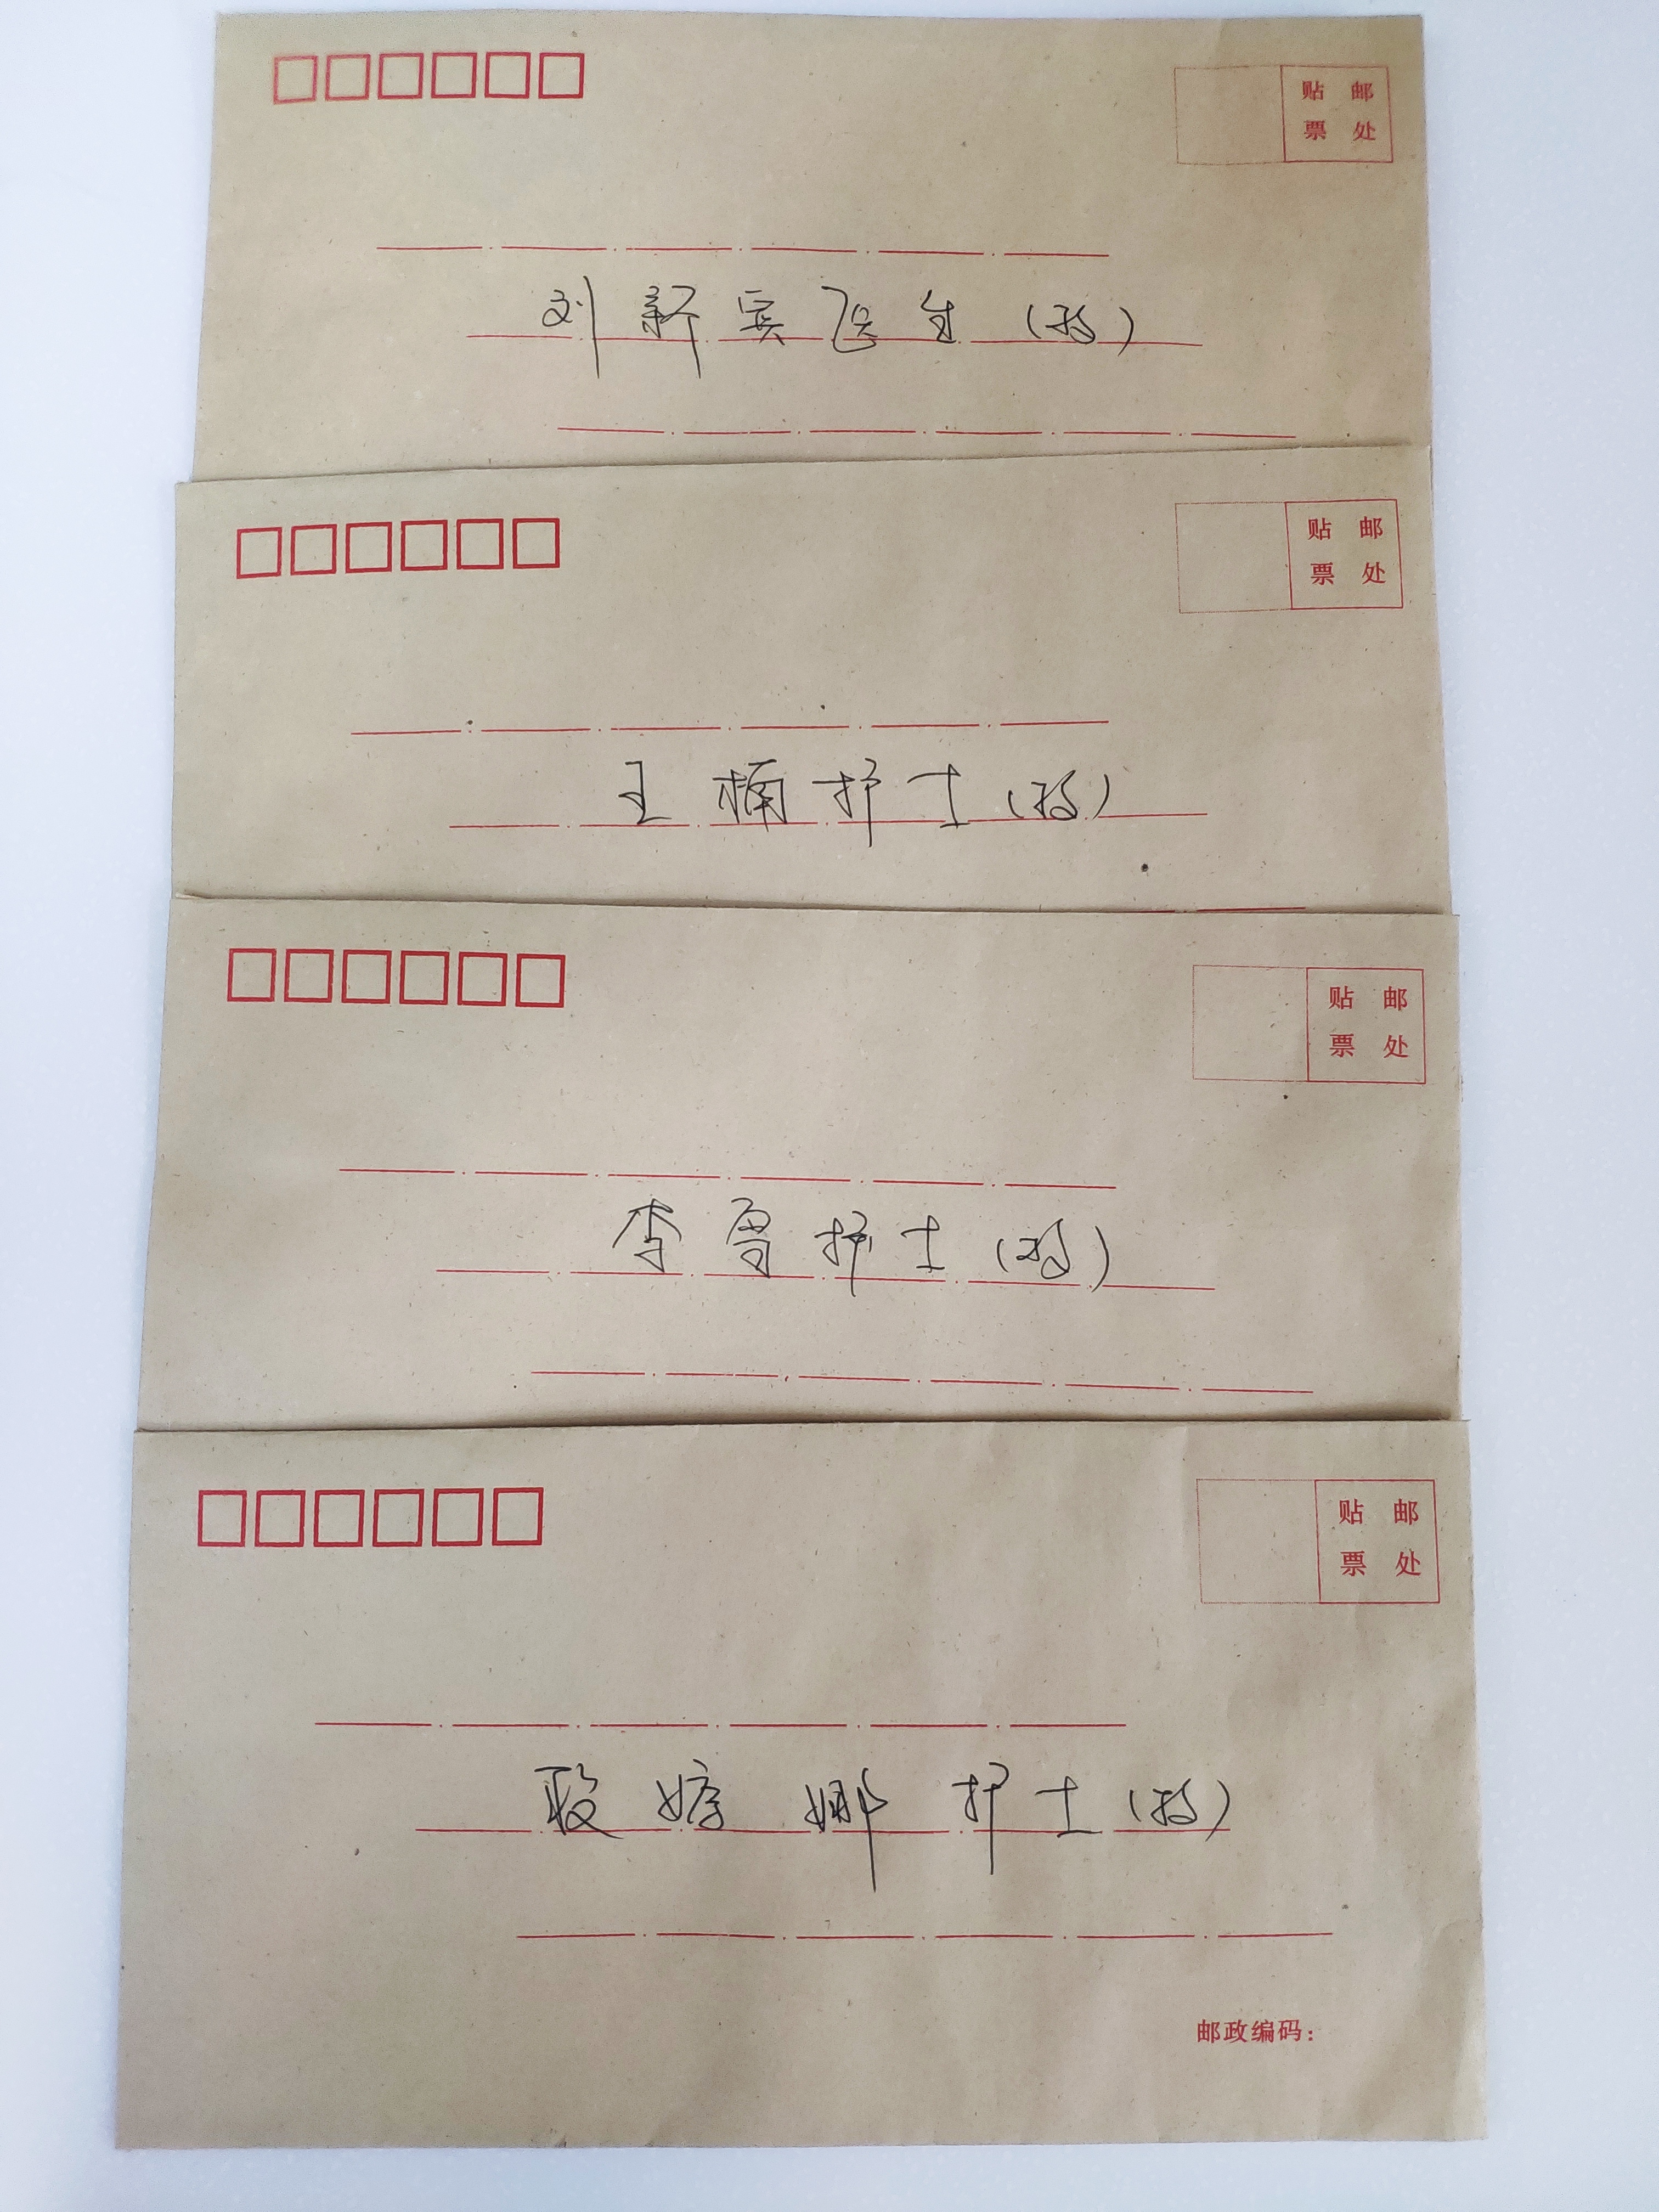 贴 邮
票 处
刘新宾医生（转）
贴 邮
票 处
王楠护士（转）
贴 邮
票 处
李雪护士（转）
贴 邮
票 处
娜 护士（转）
邮政编码：